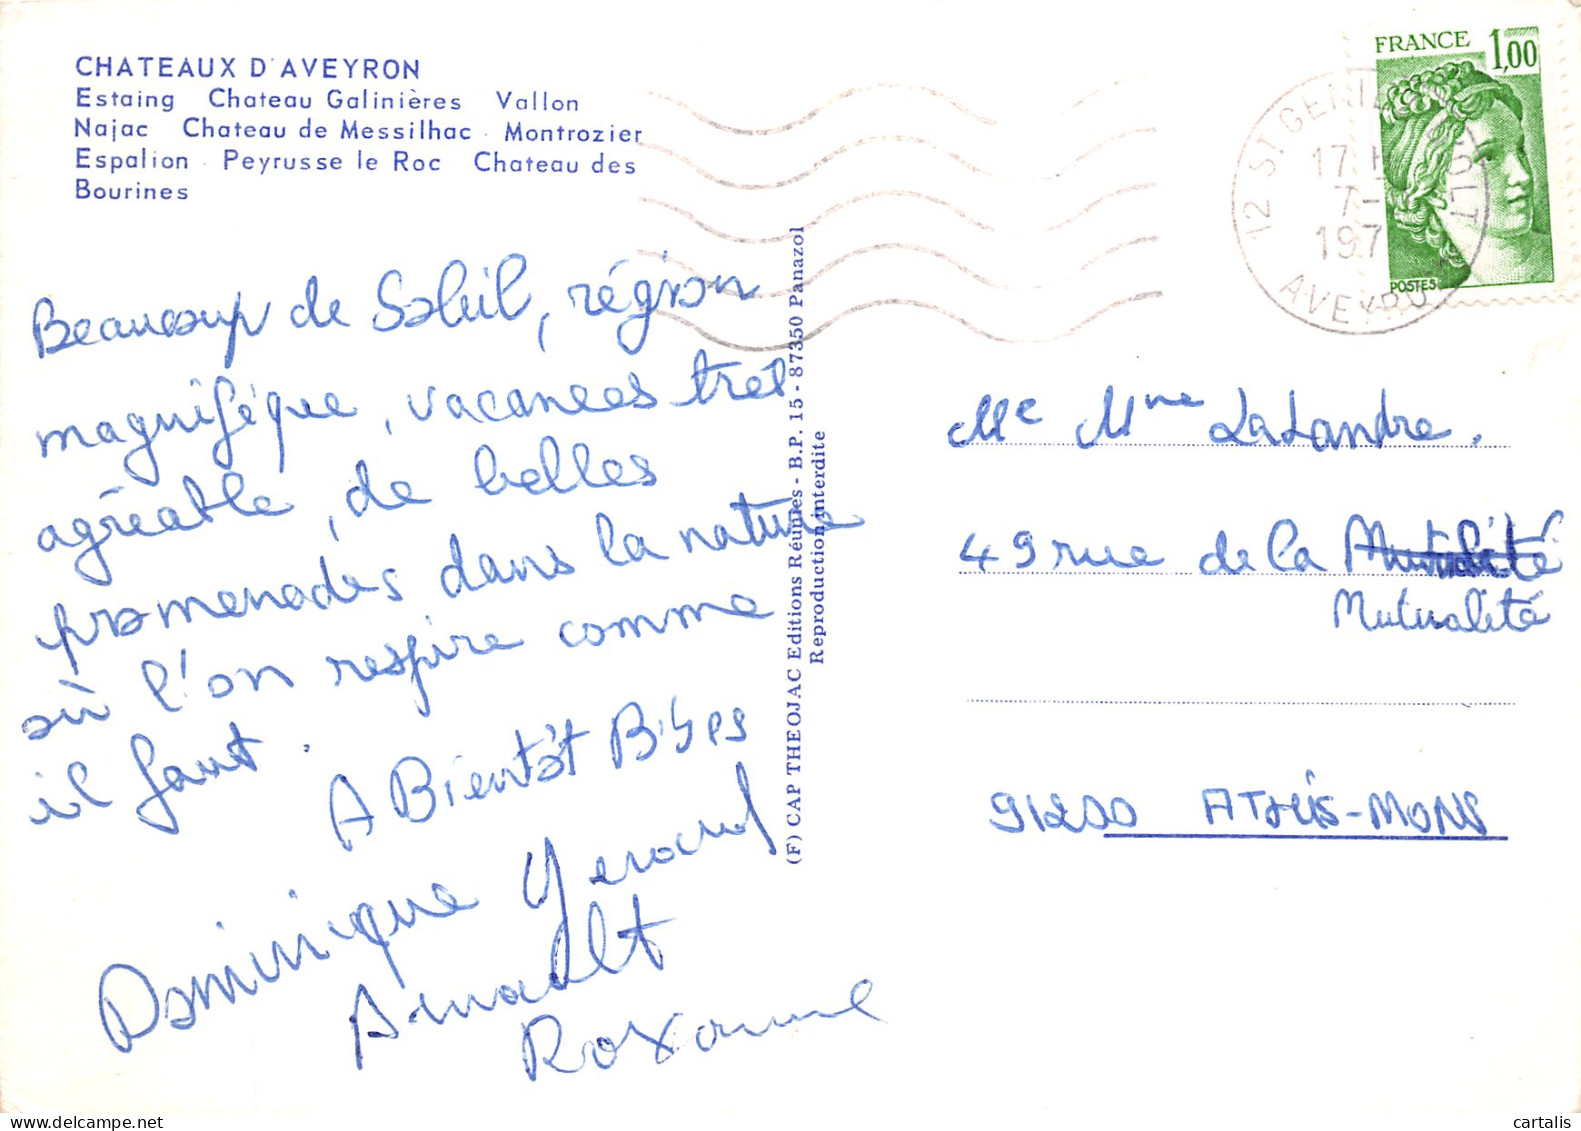 CHATEAUX D'AVEYRON
Estaing Chateau Galinières Vallon
Najac Chateau de Messilhac - Montrozier
Espalion - Peyrusse le Roc Chateau des
Bourines
FRANCE 1,00
POSTES
12 ST. GENIEZ D'OLT
17 H
7-
197
AVEYRO
Beaucoup de Soleil, région
magnifique, vacances très
agréable, de belles
promenades dans la nature
où l'on respire comme
il faut.
A Bientôt Bises
Dominique Gerard
Arnault
Roxanne
(F) CAP THEOJAC Editions Réunies - B.P. 15 - 87350 Panazol
Reproduction interdite
Mr Mme LaLandre.
49 rue de la Mutualité
Mutualité
91200 ATHIS-MONS
cartalis